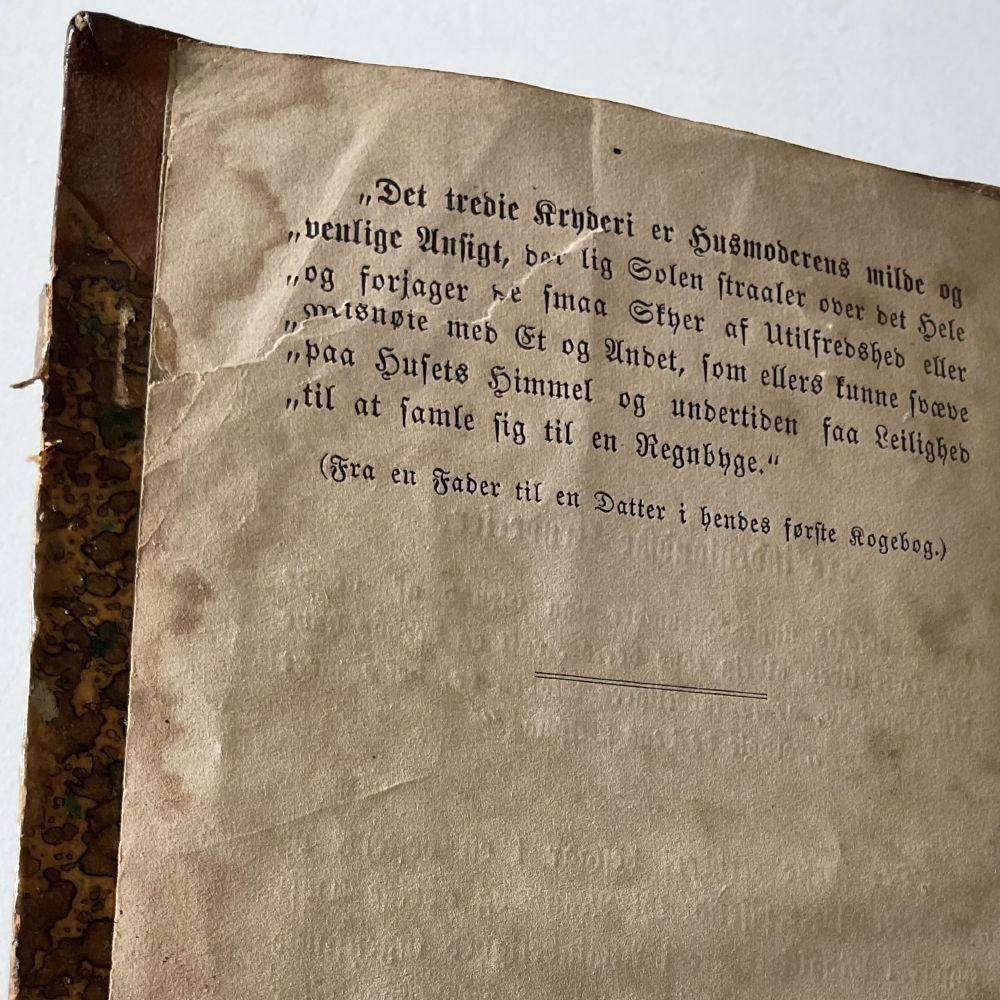 „Det tredie Kryderi er Husmoderens milde og
„venlige Ansigt, der lig Solen straaler over det Hele
„og forjager de smaa Skyer af Utilfredshed eller
„Misnøie med Et og Andet, som ellers kunne svæve
„paa Husets Himmel og undertiden faa Leilighed
„til at samle sig til en Regnbyge.“
(Fra en Fader til en Datter i hendes første Kogebog.)